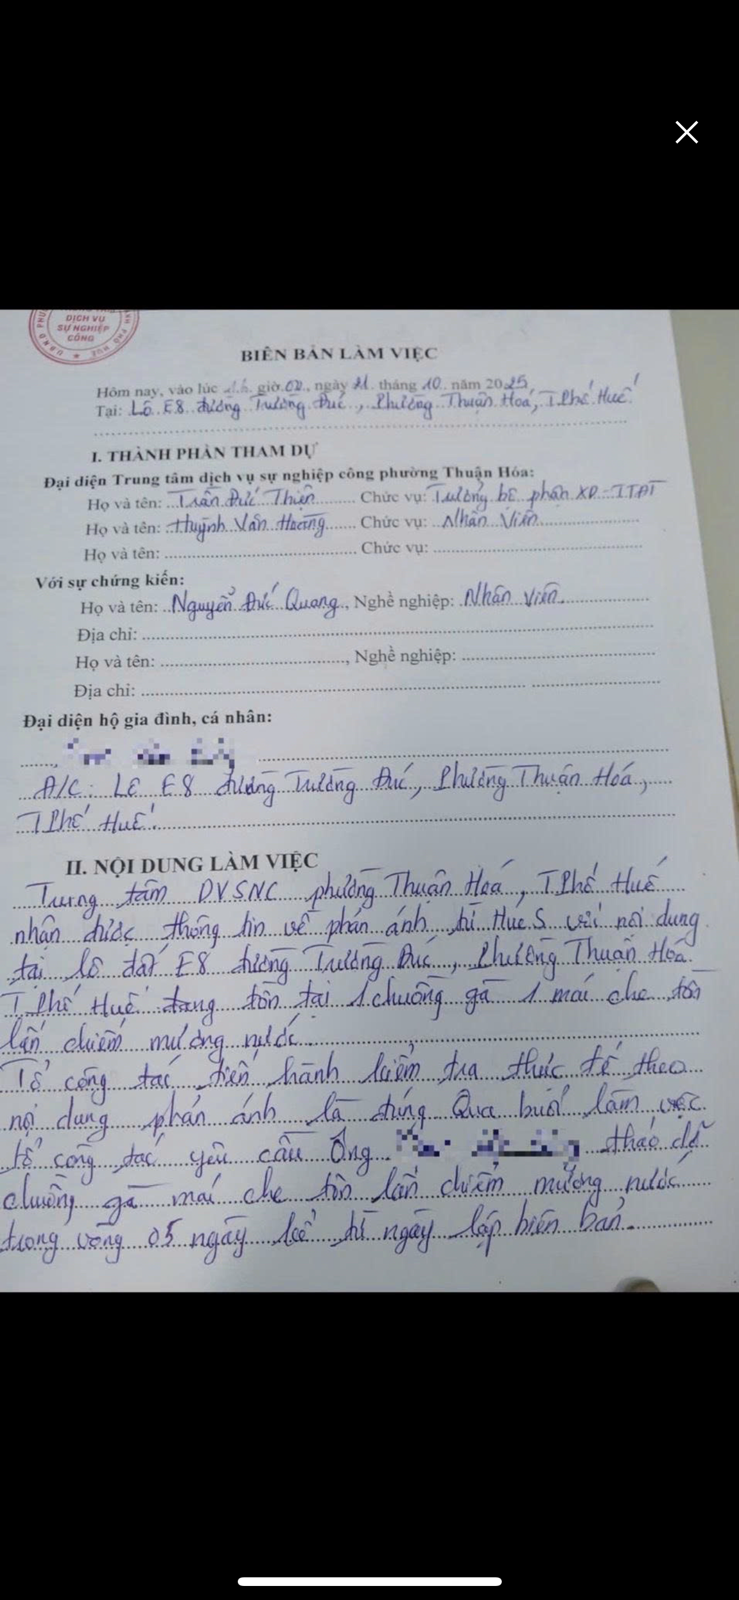 DỊCH VỤ
SỰ NGHIỆP
CÔNG
BIÊN BẢN LÀM VIỆC
Hôm nay, vào lúc 16 giờ 00, ngày 21 tháng 10 năm 2025
Tại: Lô E8 đường Trương Đức, Phường Thuận Hoá, T Phố Huế
I. THÀNH PHẦN THAM DỰ
Đại diện Trung tâm dịch vụ sự nghiệp công phường Thuận Hóa:
Họ và tên: Trần Đức Thiện Chức vụ: Trưởng bộ phận XD-TTĐT
Họ và tên: Huỳnh Văn Chức vụ: Nhân Viên
Họ và tên: Chức vụ:
Với sự chứng kiến:
Họ và tên: Nguyễn Đức Quang, Nghề nghiệp: Nhân viên
Địa chỉ:
Họ và tên: , Nghề nghiệp:
Địa chỉ:
Đại diện hộ gia đình, cá nhân:
Đ/C: Lô E8 đường Trương Đức, Phường Thuận Hoá,
T Phố Huế.
II. NỘI DUNG LÀM VIỆC
Trung tâm DVSNC phường Thuận Hoá, T.Phố Huế
nhận được thông tin về phản ánh từ Hue S với nội dung
tại lô đất E8 đường Trương Đức, Phường Thuận Hoá
T Phố Huế đang tồn tại 1 chuồng gà 1 mái che tôn
lấn chiếm mương nước.
Tổ công tác tiến hành kiểm tra thực tế theo
nội dung phản ánh là đúng Qua buổi làm việc
tổ công tác yêu cầu Ông tháo dỡ
chuồng gà mái che tôn lấn chiếm mương nước
trong vòng 05 ngày kể từ ngày lập biên bản.